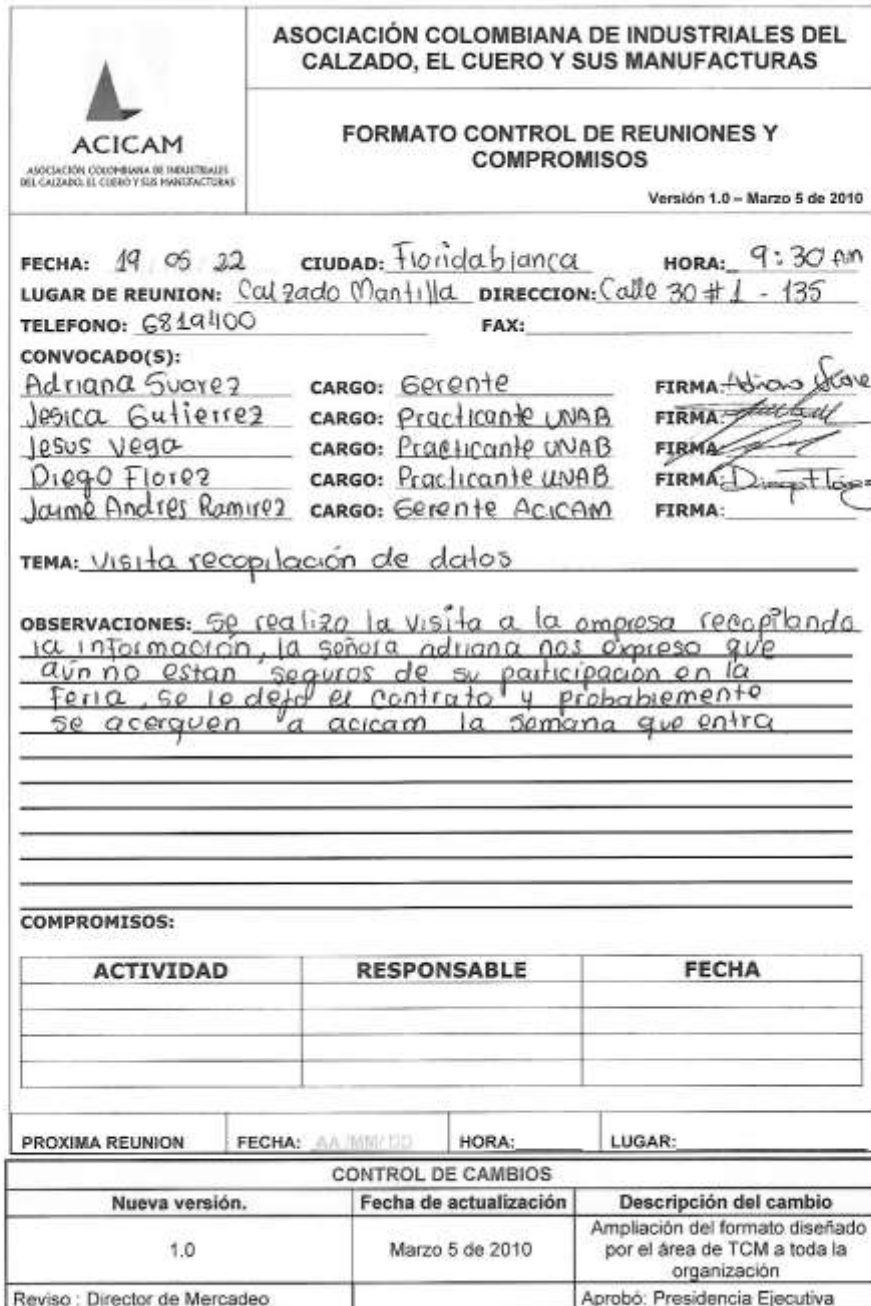 ACICAM
ASOCIACIÓN COLOMBIANA DE INDUSTRIALES
DEL CALZADO, EL CUERO Y SUS MANUFACTURAS
ASOCIACIÓN COLOMBIANA DE INDUSTRIALES DEL
CALZADO, EL CUERO Y SUS MANUFACTURAS
FORMATO CONTROL DE REUNIONES Y
COMPROMISOS
Versión 1.0 – Marzo 5 de 2010
FECHA: 19 05 22 CIUDAD: Floridablanca HORA: 9:30 AM
LUGAR DE REUNION: Calzado Mantilla DIRECCION: Calle 30 # 1 - 135
TELEFONO: 6819400 FAX:
CONVOCADO(S):
Adriana Suarez CARGO: Gerente FIRMA: Adriana Suare
Jesica Gutierrez CARGO: Practicante UNAB FIRMA:
Jesus Vega CARGO: Practicante UNAB FIRMA:
Diego Florez CARGO: Practicante UNAB FIRMA:
Jaime Andres Ramirez CARGO: Gerente ACICAM FIRMA:
TEMA: Visita recopilación de datos
OBSERVACIONES: Se realizo la visita a la empresa recopilando
la información, la señora adriana nos expreso que
aún no estan seguros de su participación en la
feria, se le dejo el contrato y probablemente
se acerquen a acicam la semana que entra
COMPROMISOS:
ACTIVIDAD RESPONSABLE FECHA
PROXIMA REUNION FECHA: AA/MM/DD HORA: LUGAR:
CONTROL DE CAMBIOS
Nueva versión. Fecha de actualización Descripción del cambio
1.0 Marzo 5 de 2010 Ampliación del formato diseñado
por el área de TCM a toda la
organización
Reviso : Director de Mercadeo Aprobó: Presidencia Ejecutiva